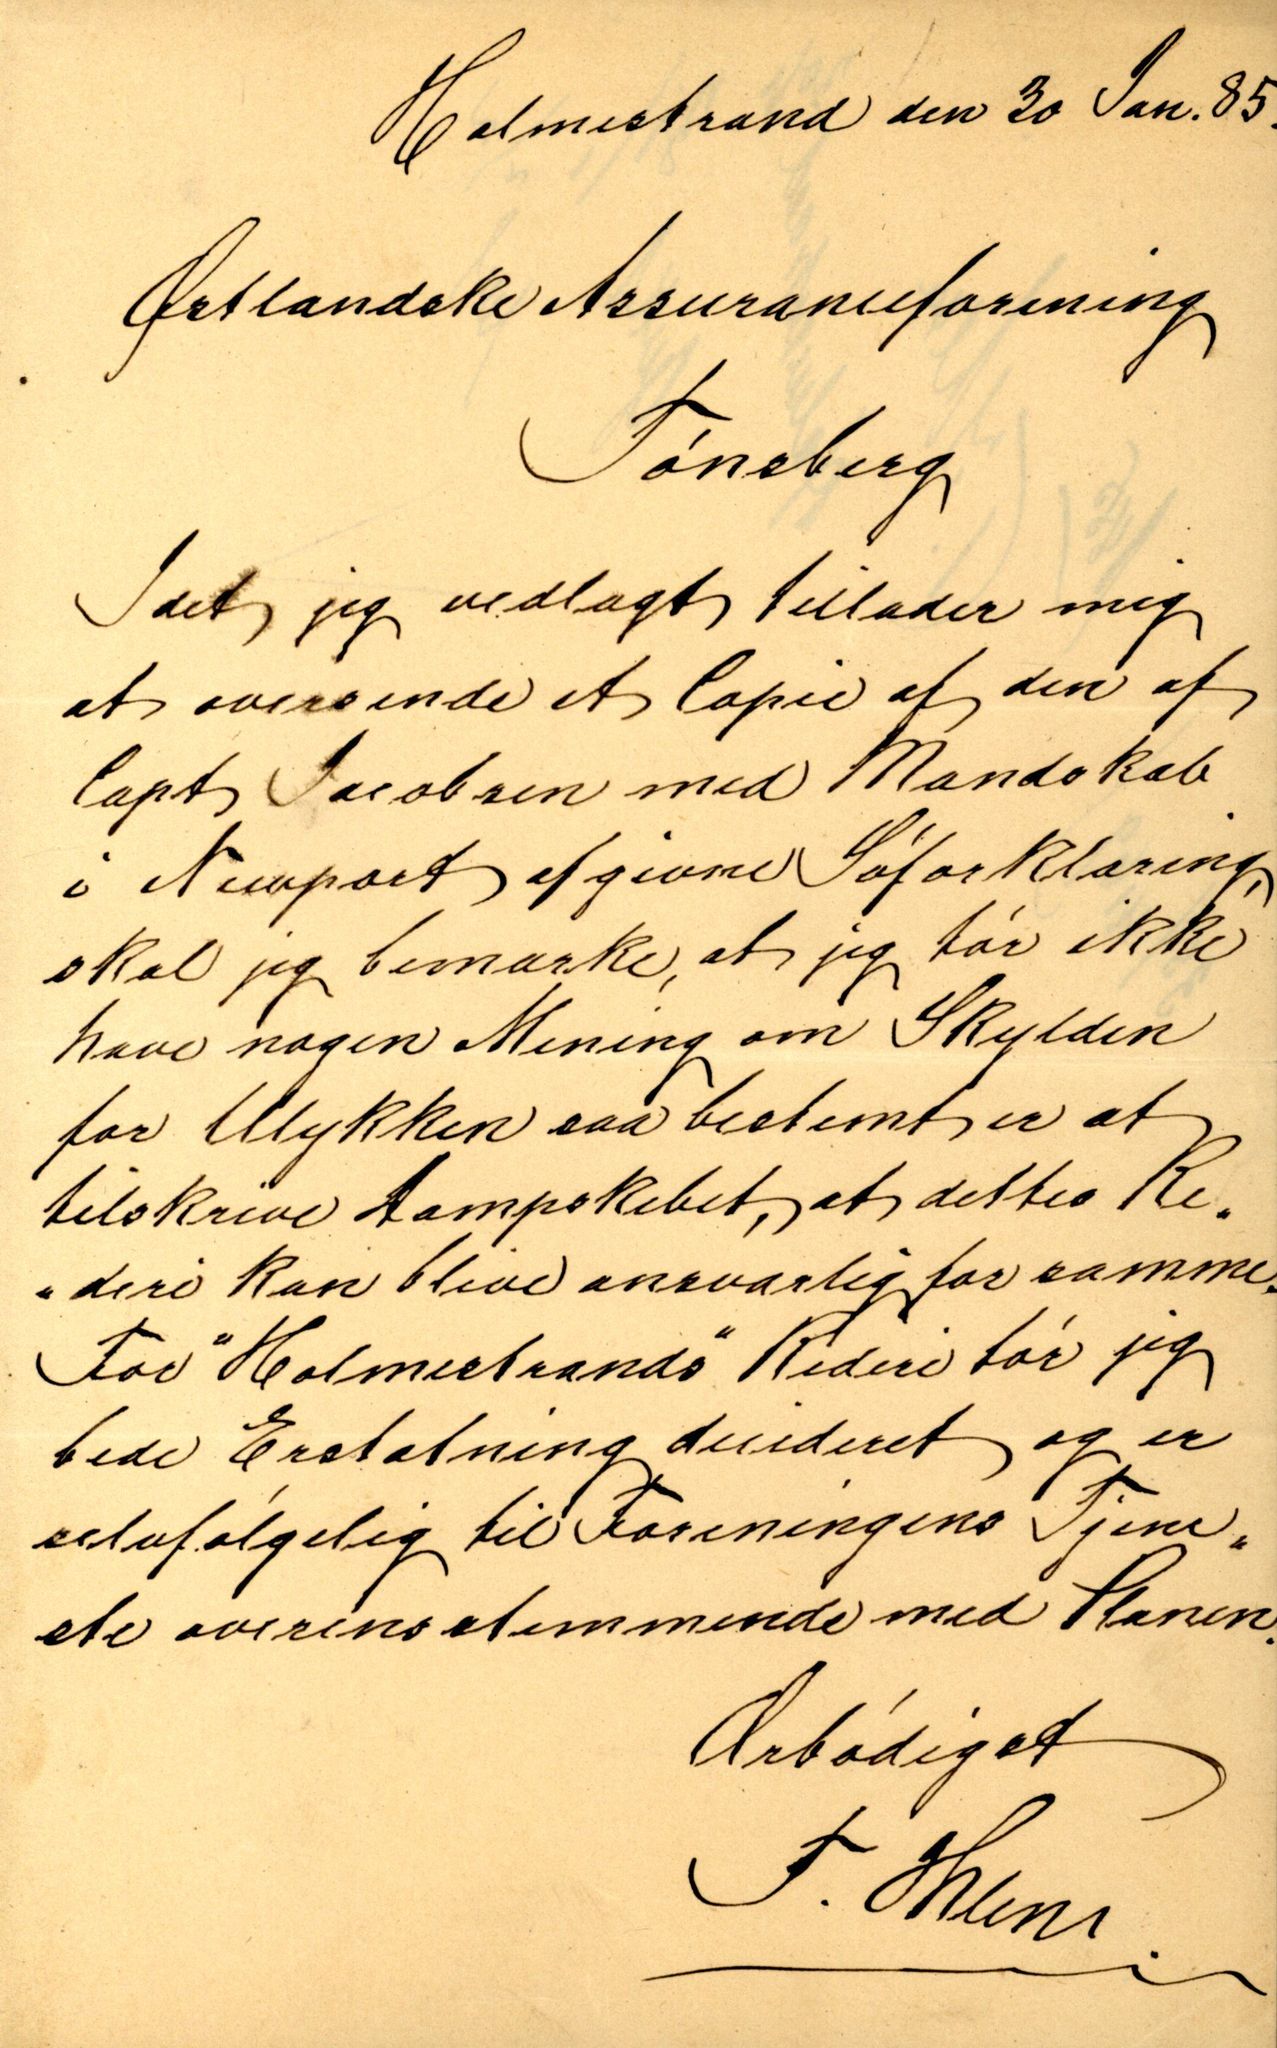 Holmestrand den 30 Jan. 85.
Østlandske Assuranceforening
Tónsberg
Idet jeg vedlagt tillader mig
at oversende et Copie af den af
Capt Jacobsen med Mandskab
i Newport afgivne Sóforklaring,
skal jeg bemærke, at jeg tór ikke
have nogen Mening om Skylden
for Ulykken saa bestemt er at
tilskrive Dampskibet, at dettes Re„
„deri kan blive ansvarlig for samme.
For "Holmestrands" Rederi tór jeg
bede Erstatning decideret og er
selvfólgelig til Foreningens Tjene„
ste overensstemmende med Planen.
Ærbódigst
F.